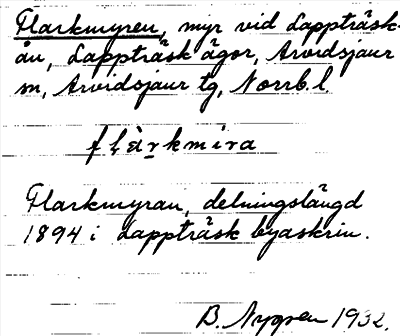 Flarkmyren, myr vid Lappträsk-
ån, Lappträsk ägor, Arvidsjaur
sn, Arvidsjaur tg, Norrb. l.
Flarkmyran, delningslängd
1894 i Lappträsk byaskrin.
B. Nygren 1932.